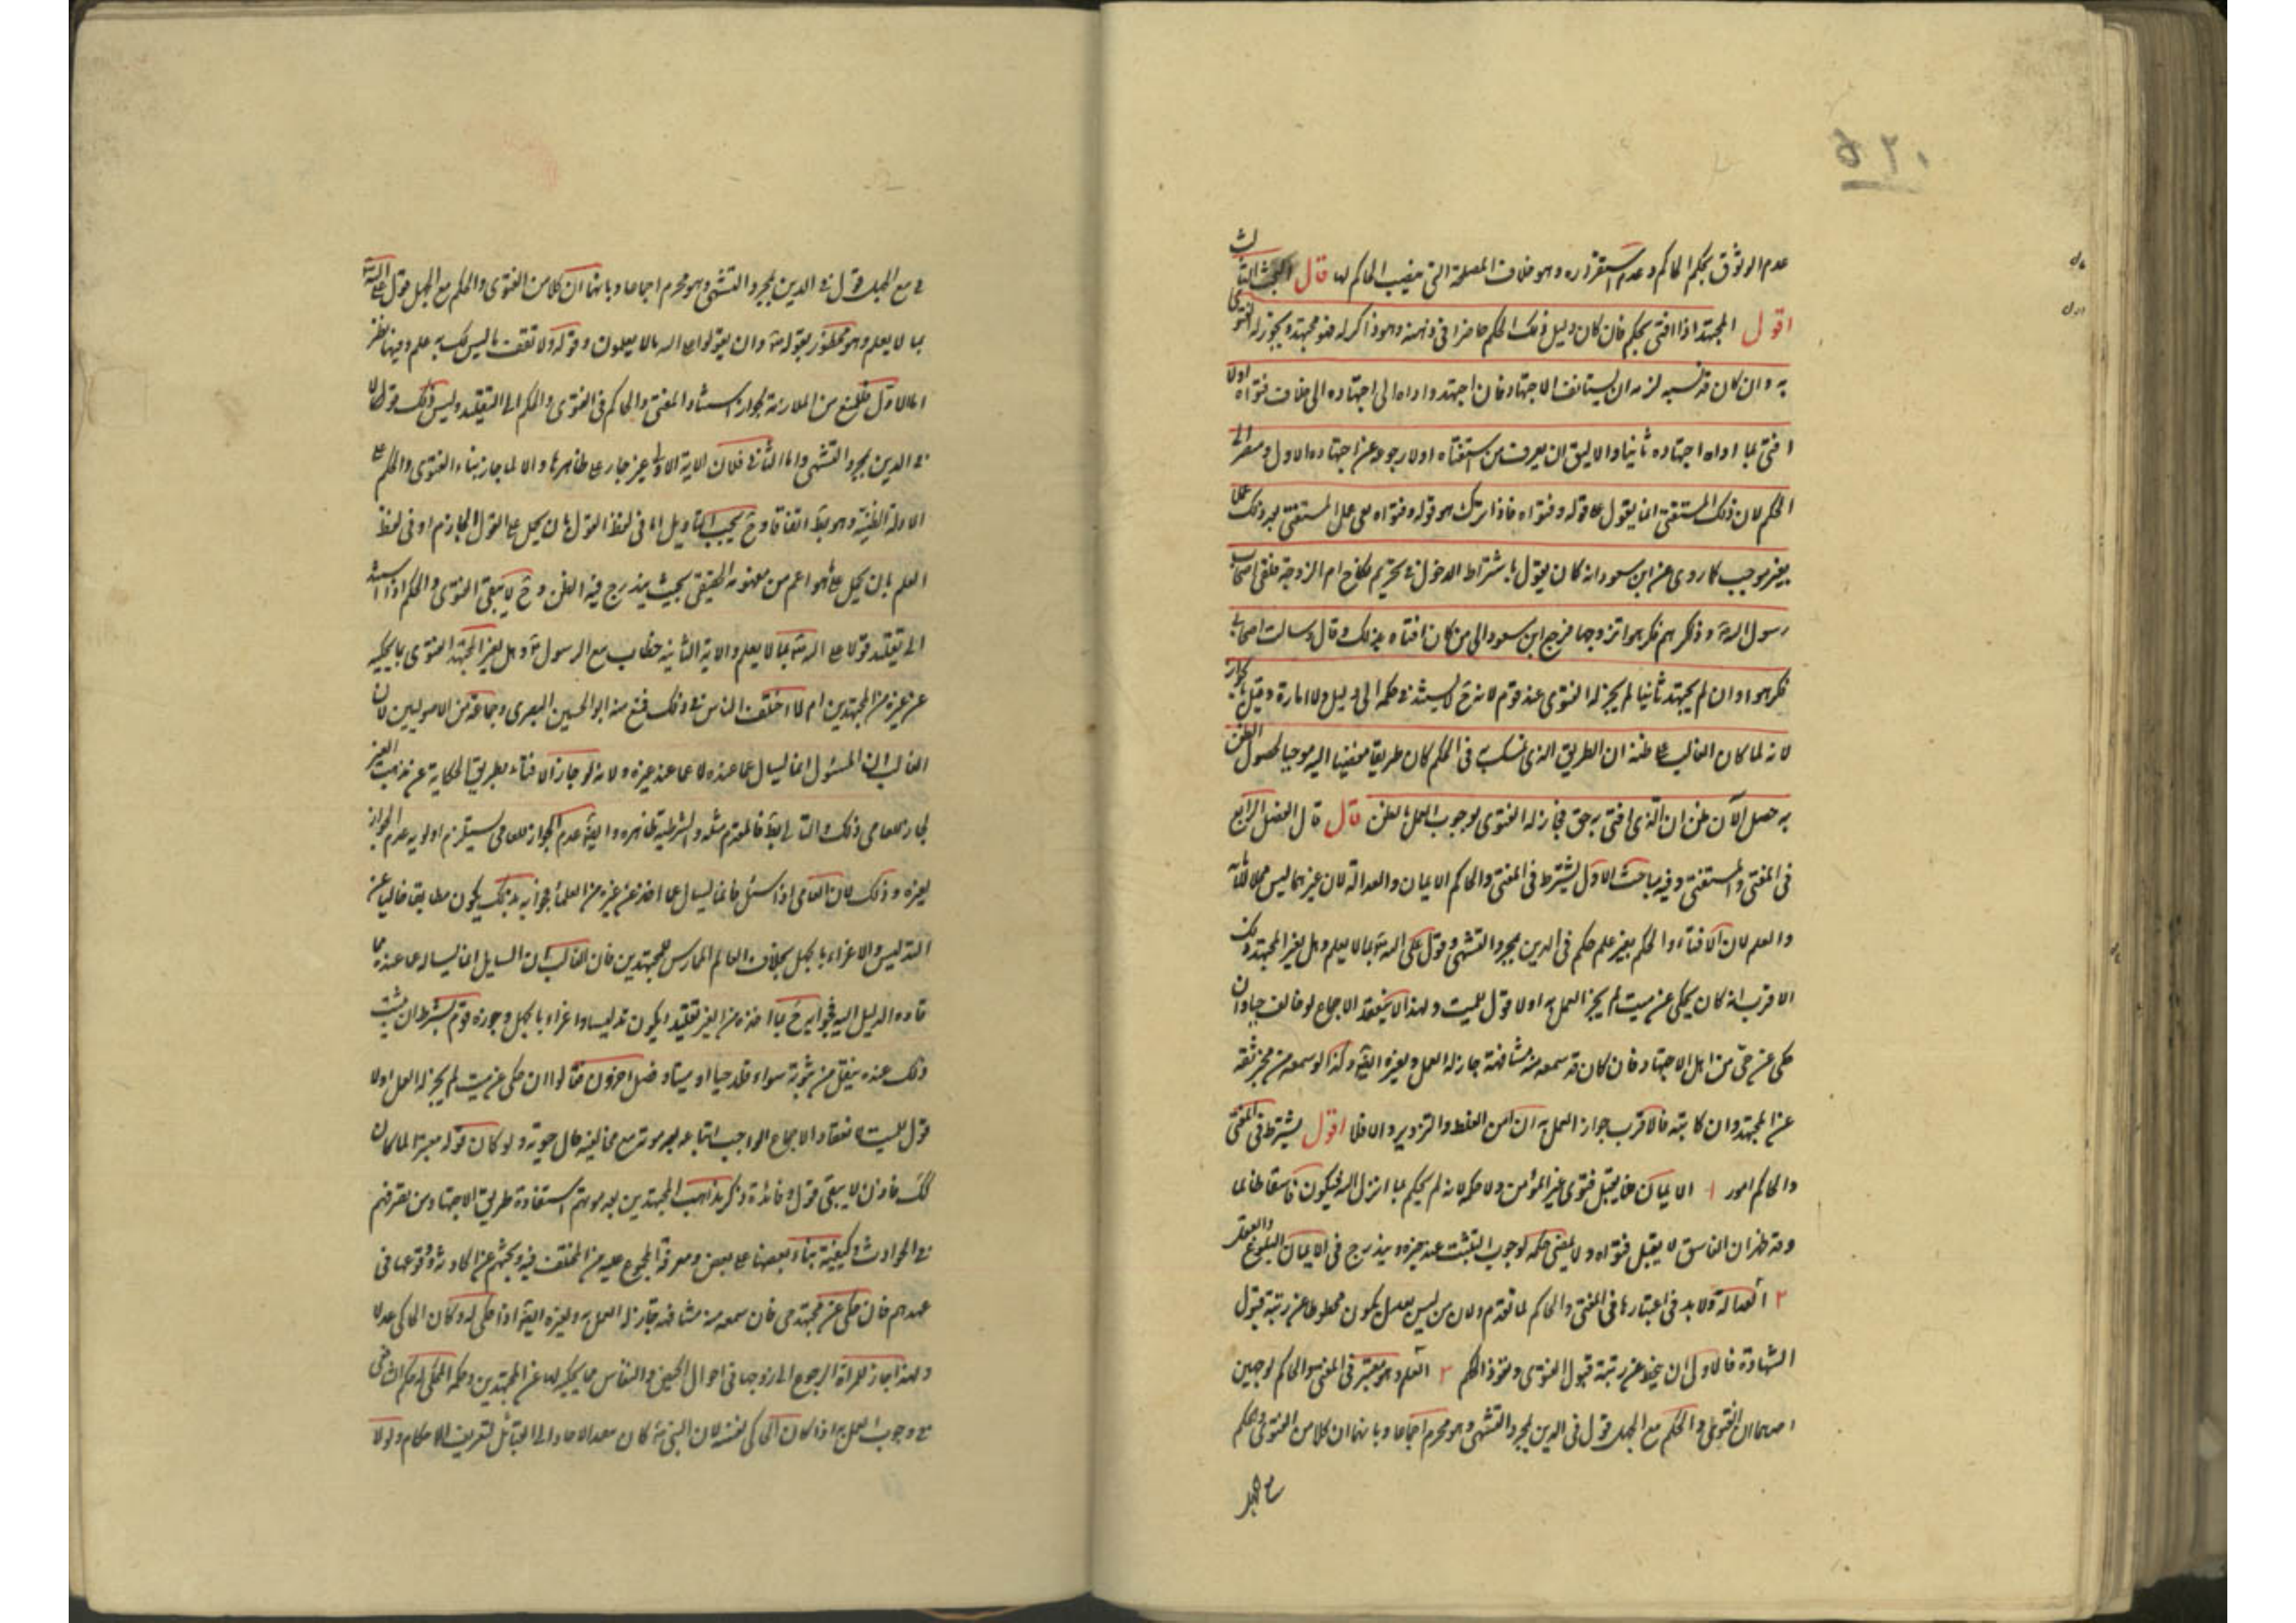 ٥٢٠
عدم الوثوق بحكم الحاكم وعدم استقراره وهو خلاف المصلحة التي نصب الحاكم لها قال البحث الثالث
اقول المجتهد اذا افتى بحكم فان كان دليل ذلك الحكم حاضرا في ذهنه وهو ذاكر له فهو مجتهد ويجوز له الفتوى
به وان كان قد نسيه لزمه ان يستانف الاجتهاد فان اجتهد واداه الى اجتهاده الى خلاف فتواه اولا
افتى بما اداه اجتهاده ثانيا والاليق ان يعرف من استفتاه اولا رجوعه عن اجتهاده الاول ومصيره الى
الحكم لان ذلك المستفتي انما يعول على قوله وفتواه فاذا ترك هو قوله وفتواه بقى عمل المستفتي بعد ذلك عملا
بغير موجب كما روى عن ابن مسعود انه كان يقول باشتراط الدخول في تحريم نكاح ام الزوجة فلقى اصحاب
رسول الله وذاكرهم فكرهوا تزوجها فرجع ابن مسعود الى من كان افتاه بذلك وقال وسالت اصحابى
فكرهوا وان لم يجتهد ثانيا لم يجز له الفتوى عند قوم لانه ح لا يستند في حكمه الى دليل ولا امارة وقيل بالجواز
لانه لما كان الغالب على ظنه ان الطريق الذي تمسك به في الحكم كان طريقا مفضيا اليه موجبا لحصول الظن
به حصل الآن ظن ان الذي افتى به حق فجاز له الفتوى لوجوب العمل بالظن قال قال الفصل الرابع
في المفتي والمستفتي وفيه مباحث الاول يشترط في المفتي والحاكم الايمان والعدالة لان غيرهما ليس محلا للامانة
والعلم لان الافتاء والحكم بغير علم حكم في الدين بمجرد التشهي وقول على الله بما لا يعلم وهل لغير المجتهد ذلك
الاقرب انه كان يحكى عن ميت لم يجز العمل به اذ لا قول للميت ولهذا لا ينعقد الاجماع لو خالف حيا وان
حكى عن حي من اهل الاجتهاد فان كان قد سمعه منه مشافهة جاز له العمل ولغيره ايضا وكذا لو سمعه من مخبر ثقة
عن المجتهد وان كان كتبه فالاقرب جواز العمل به ان امن الغلط والتزوير والا فلا اقول يشترط في المفتي
والحاكم امور ١ الايمان فلا يقبل فتوى غير المؤمن ولا حكمه لانه لم يحكم بما انزل الله فيكون فاسقا ظالما
وقد ظهر ان الفاسق لا يقبل فتواه ولا يمضى حكمه لوجوب التثبت عند خبره ويندرج في الايمان البلوغ والعقل
٢ العدالة ولا بد في اعتبارها في المفتي والحاكم لما تقدم ولان من ليس بعدل يكون محطوطا عن رتبة قبول
الشهادة فالاولى ان يحط عن رتبة قبول الفتوى ونفوذ الحكم ٣ العلم وهو معتبر في المفتي والحاكم لوجهين
احدهما ان الفتوى والحكم مع الجهل قول في الدين بمجرد التشهي وهو محرم اجماعا وثانيهما ان كلا من الفتوى والحكم
مع الجهل
في مع الجهل قول في الدين بمجرد التشهي وهو محرم اجماعا وثانيهما ان كلا من الفتوى والحكم مع الجهل قول على الله
بما لا يعلم وهو محظور بقوله وان تقولوا على الله ما لا تعلمون وقوله ولا تقف ما ليس لك به علم وفيهما نظر
اما الاول فللمنع من الملازمة لجواز استناد المفتي والحاكم في الفتوى والحكم الى التقليد وليس ذلك قولا
في الدين بمجرد التشهي واما الثاني فلان الاية الاولى غير جار على ظاهرها والا لما جاز بناء الفتوى والحكم على
الادلة الظنية وهو بط اتفاقا وح يجب التاويل اما في لفظ القول بان يحمل على القول الجازم او في لفظ
العلم بان يحمل على ما هو اعم من مفهومه الحقيقي بحيث يندرج فيه الظن وح لا يبقى الفتوى والحكم اذا استند
الى تقليد قولا على الله بما لا يعلم والاية الثانية خطاب مع الرسول وهل لغير المجتهد الفتوى بما يحكيه
عن غيره من المجتهدين ام لا اختلف الناس في ذلك فمنع منه ابو الحسين البصرى وجماعة من الاصوليين لان
الغالب ان المسئول انما يسال عما عنده لا عما عند غيره ولانه لو جاز الافتاء بطريق الحكاية عن مذهب الغير
لجاز للعامى ذلك والتالي بط فالمقدم مثله والشرطية ظاهرة وايضا عدم الجواز للعامي يستلزم اولوية عدم الجواز
لغيره وذلك لان العامى اذا سئل فانما يسال عما اخذ عن غيره من العلماء فجوابه بذلك يكون مطابقا خاليا عن
التدليس والاغراء بالجهل بخلاف العالم الممارس للمجتهدين فان الغالب ان السايل انما يساله عما عنده مما
قاده الدليل اليه فجوابه ح بما اخذه من الغير تقليدا يكون تدليسا واغراء بالجهل وجوزه قوم بشرط ان يثبت
ذلك عنده بنقل من يثق به سواء قلد حيا او ميتا وفصل اخرون فقالوا ان حكى عن ميت لم يجز له العمل اذ لا
قول للميت لانعقاد الاجماع الواجب اتباعه بعد موته مع مخالفته حال حيوته ولو كان قوله معتبرا لما كان
كك فاذن لا يبقى قول وفائدة ذكر مذاهب المجتهدين بعد موتهم استفادة طريق الاجتهاد من تصرفهم
في الحوادث وكيفية بناء بعضها على بعض ومعرفة المجمع عليه من المختلف فيه وبحثهم عن الحادثة ووقوعها في
عهدهم فان حكى عن مجتهد حى فان سمعه منه مشافهة جاز له العمل به ولغيره ايضا اذا حكى له وكان الحاكي عدلا
ولهذا جاز للمراة الرجوع الى زوجها في احوال الحيض والنفاس بما يحكيه لها عن المجتهدين وحكم المحكى له حكم الحاكى
في وجوب العمل به اذا كان الحاكي ثقة لان النبي كان يبعث الاحاد الى القبائل لتعريف الاحكام ولولا